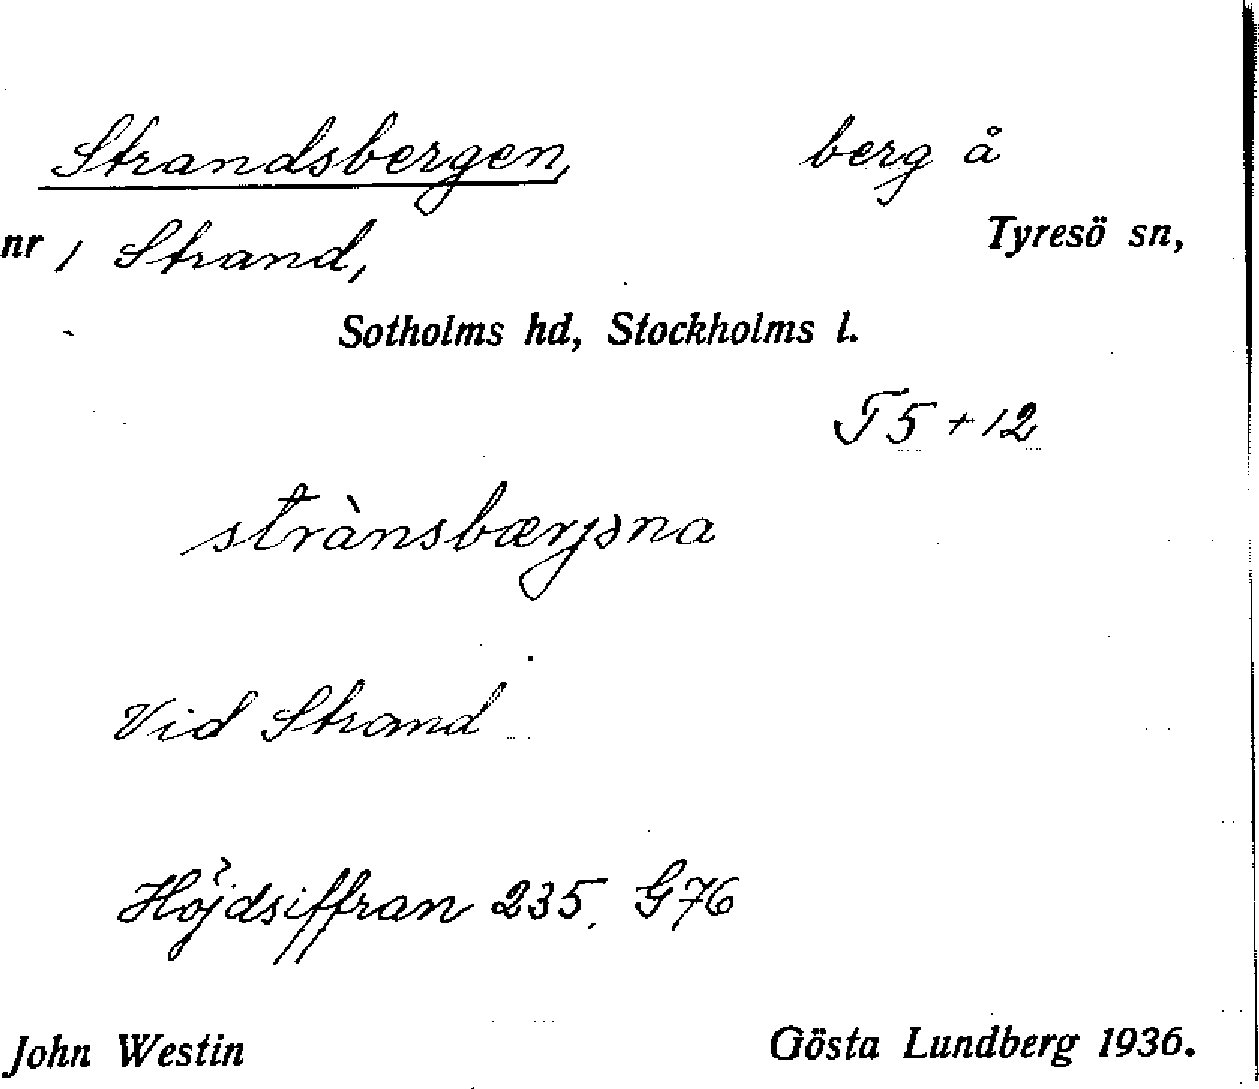 Strandsbergen, berg å
nr 1 Strand, Tyresö sn,
Sotholms hd, Stockholms l.
T5 + 12
strànsbærjəna
Vid Strand
Höjdsiffran 235. G76
John Westin Gösta Lundberg 1936.